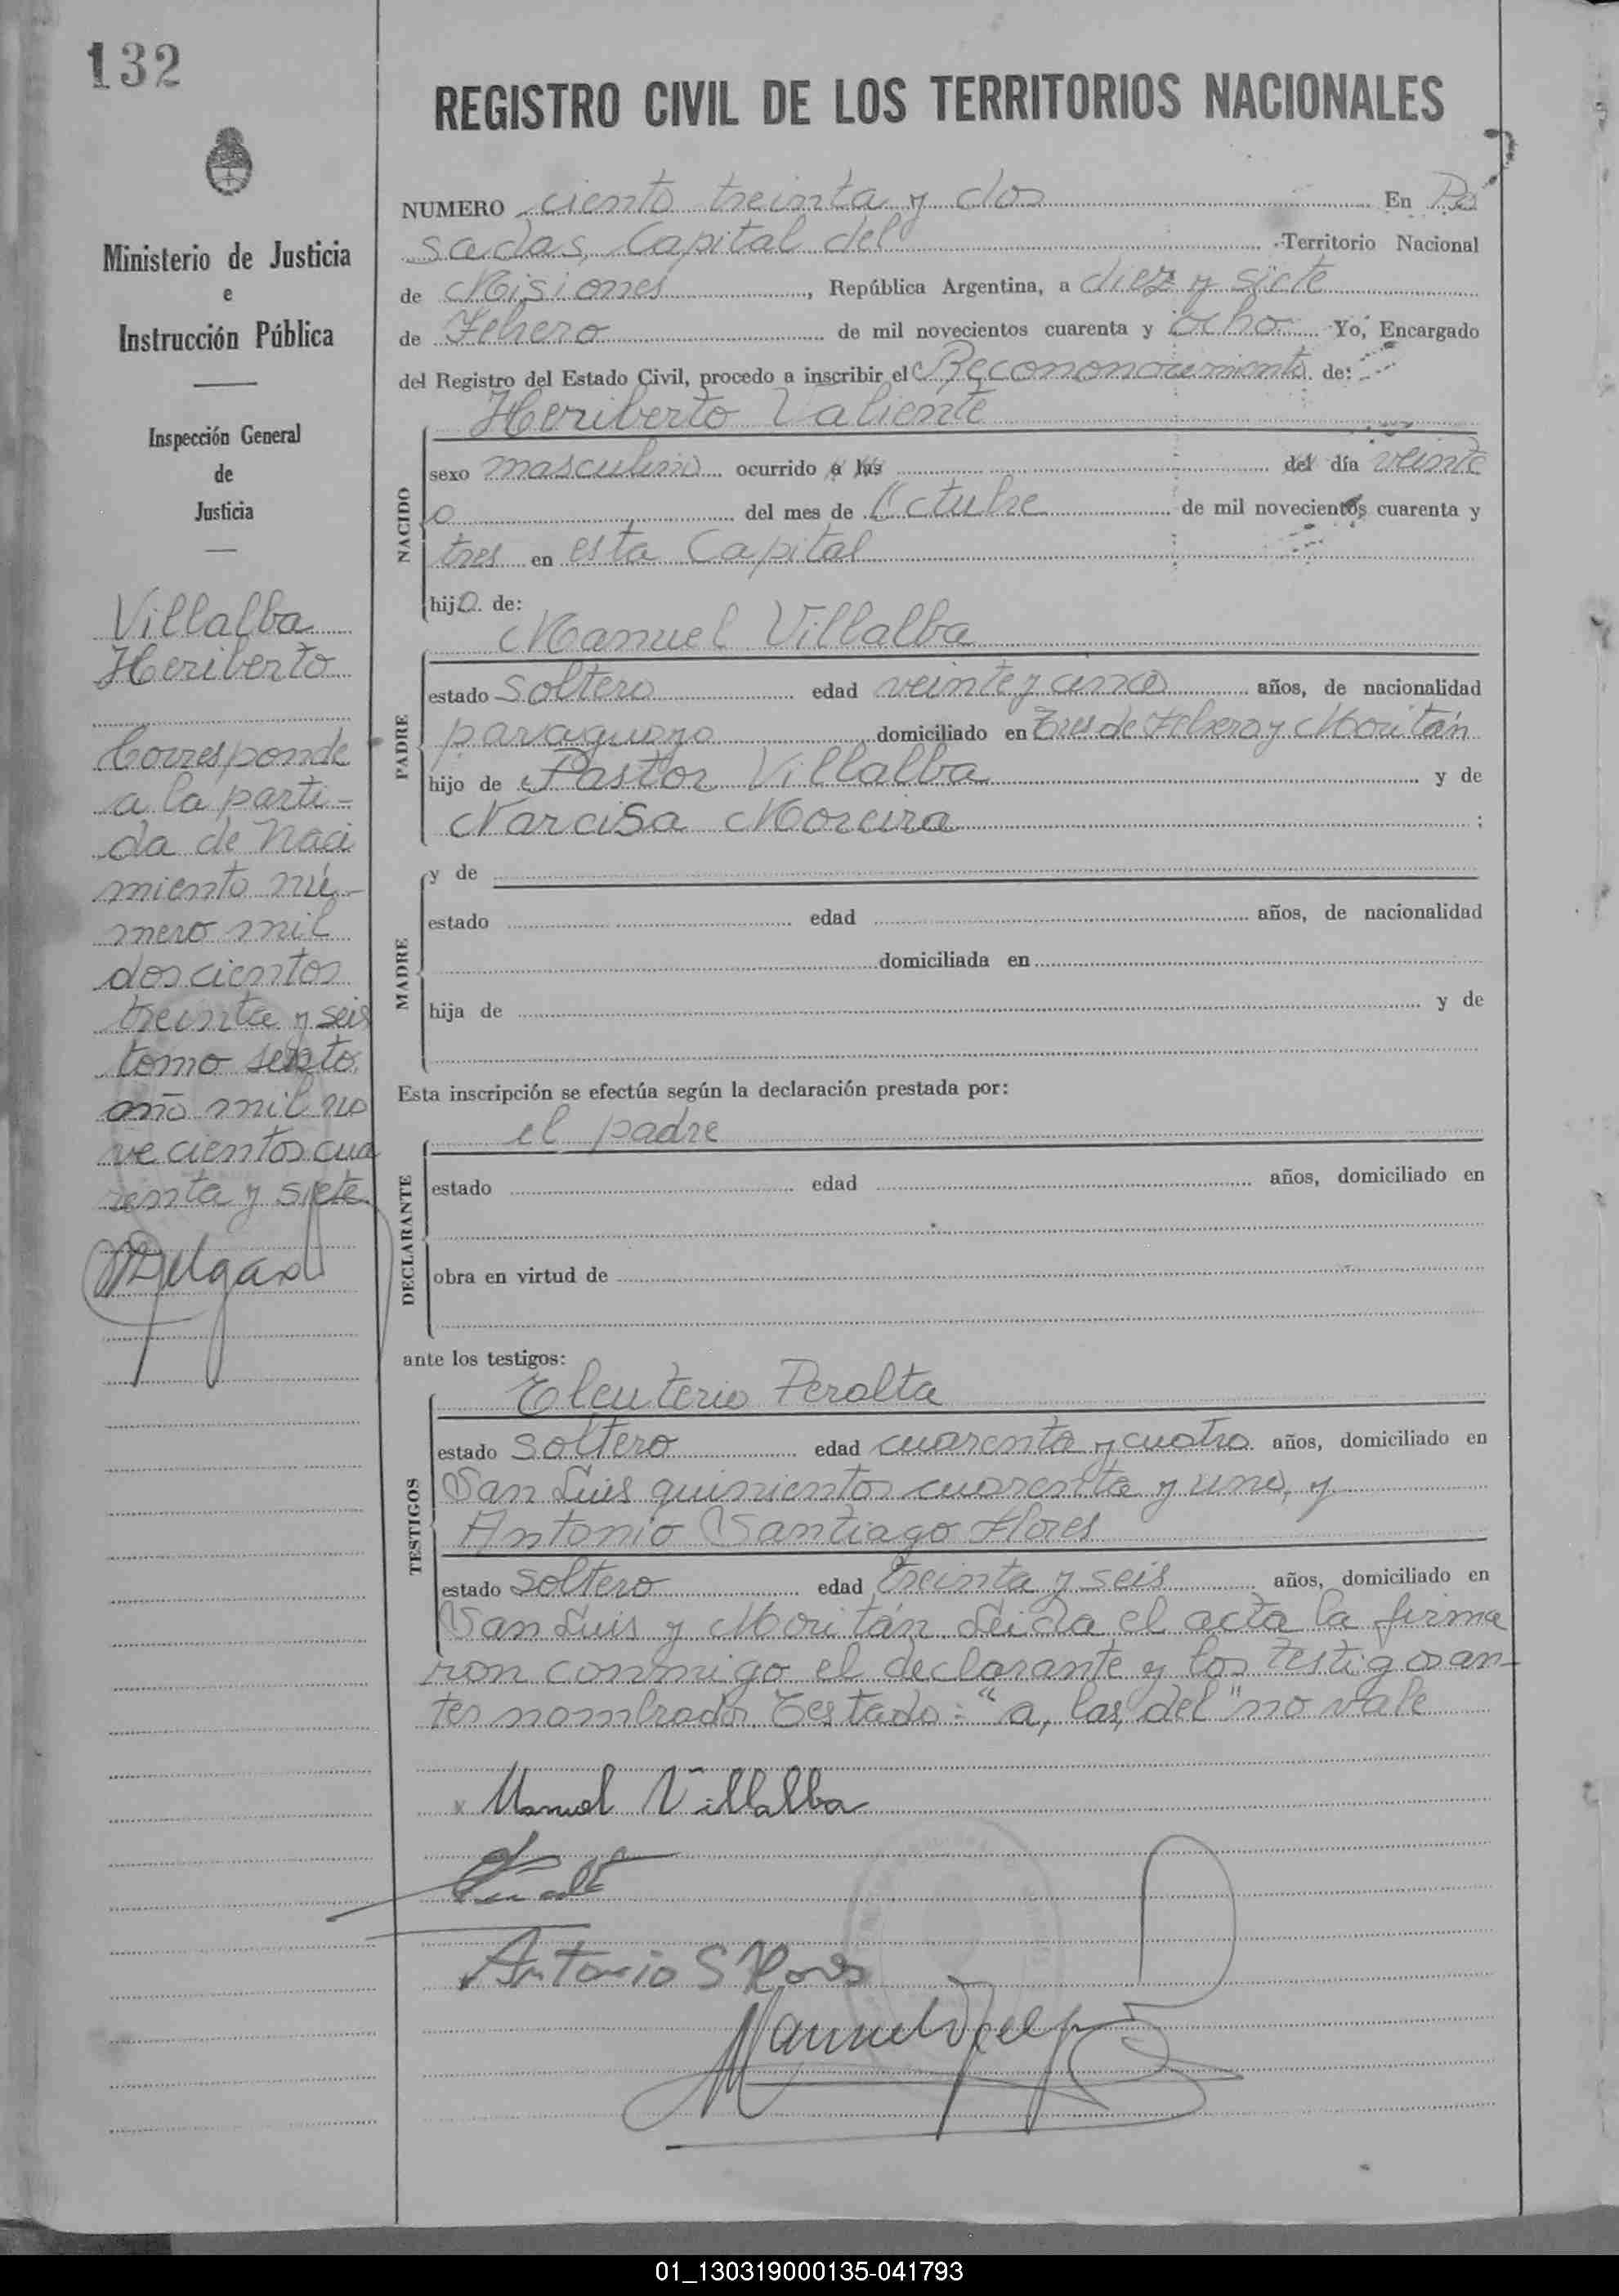 132
Ministerio de Justicia
e
Instrucción Pública
Inspección General
de
Justicia
Villalba
Heriberto
Corresponde
a la parti-
da de Naci
miento nú-
mero mil
doscientos
treinta y seis
tomo sexto
año mil no
vecientos cua
renta y siete
REGISTRO CIVIL DE LOS TERRITORIOS NACIONALES
NUMERO ciento treinta y dos En Po
sadas, Capital del Territorio Nacional
de Misiones, República Argentina, a diez y siete
de Febrero de mil novecientos cuarenta y ocho Yo, Encargado
del Registro del Estado Civil, procedo a inscribir el Recononocimiento de:
Heriberto Valiente
NACIDO
sexo masculino ocurrido a las del día veinte
o del mes de Octubre de mil novecientos cuarenta y
tres en esta Capital
hijo de:
Manuel Villalba
PADRE
estado soltero edad veinte y años, de nacionalidad
paraguayo domiciliado en Tres de Febrero y Moritán
hijo de Pastor Villalba y de
Narcisa Moreira ;
MADRE
y de
estado edad años, de nacionalidad
domiciliada en
hija de y de
Esta inscripción se efectúa según la declaración prestada por:
el padre
DECLARANTE
estado edad años, domiciliado en
obra en virtud de
ante los testigos:
Eleuterio Peralta
TESTIGOS
estado soltero edad cuarenta y cuatro años, domiciliado en
San Luis quinientos cuarenta y uno, y
Antonio Santiago Flores
estado soltero edad treinta y seis años, domiciliado en
San Luis y Moritán Leida el acta la firma
ron conmigo el declarante y los testigos an-
tes nombrados. Testado: "a, las, del" no vale
Manuel Villalba
Antonio S Flores
01_130319000135-041793